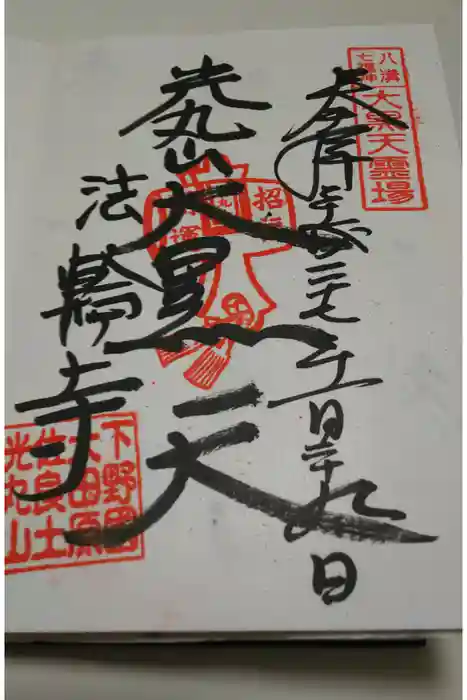 八溝
七福神
大黒天霊場
奉拝 平成二十七年五月二十九日
光丸山大黒天
法輪寺
招福
開運
下野国
大田原
佐良土
光丸山